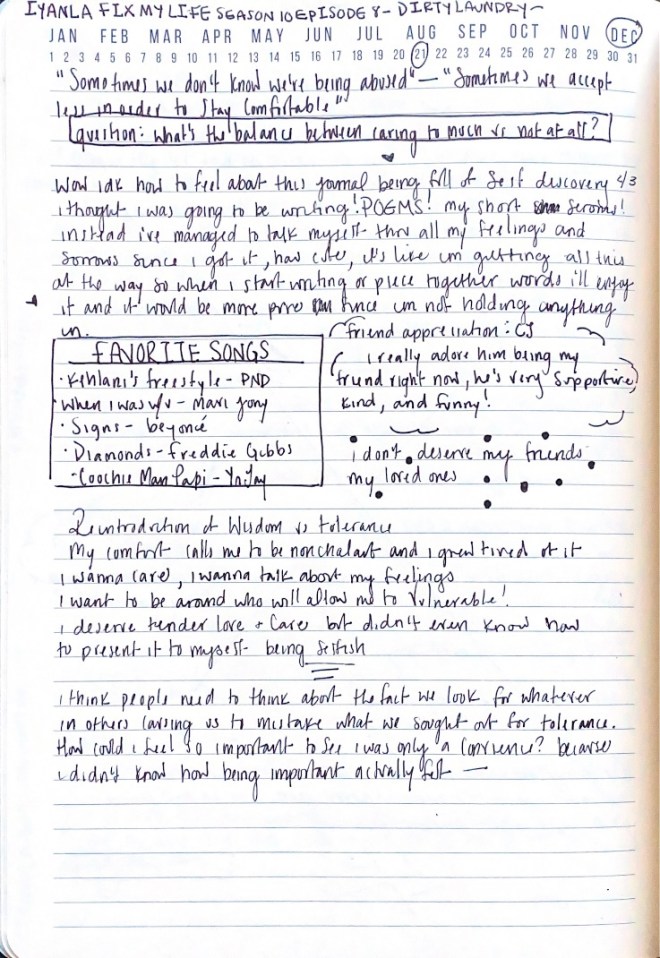 IYANLA FIX MY LIFE SEASON 10 EPISODE 8 - DIRTY LAUNDRY~
JAN FEB MAR APR MAY JUN JUL AUG SEP OCT NOV DEC
1 2 3 4 5 6 7 8 9 10 11 12 13 14 15 16 17 18 19 20 21 22 23 24 25 26 27 28 29 30 31
"Sometimes we don't know we're being abused" — "Sometimes we accept
less in order to stay comfortable"
question: what's the balance between caring to much vs not at all?
Wow idk how to feel about this journal being full of self discovery 4/3
i thought i was going to be writing! POEMS! my short
instead i've managed to talk myself thru all my feelings and
sorrows since i got it, how cute, it's like im getting all this
out the way so when i start writing or piece together words i'll enjoy
it and it would be more since im not holding anything
in.
FAVORITE SONGS
· Kehlani's freestyle - PND
· When I was w/v - Mari
· Signs - beyoncé
· Diamonds - freddie Gibbs
· Coochie Man Papi - Yn Jay
friend appreciation: CJ
i really adore him being my
friend right now, he's very supportive,
kind, and funny!
i don't deserve my friends
my loved ones
Reintroduction of Wisdom vs tolerance
My comfort calls me to be nonchalant and i grew tired of it
I wanna care, i wanna talk about my feelings
I want to be around who will allow me to vulnerable!
i deserve tender love + care but didn't even know how
to present it to myself - being selfish
i think people need to think about the fact we look for whatever
in others causing us to mistake what we sought out for tolerance.
How could i feel so important to see i was only a convience? because
i didn't know how being important actually felt —